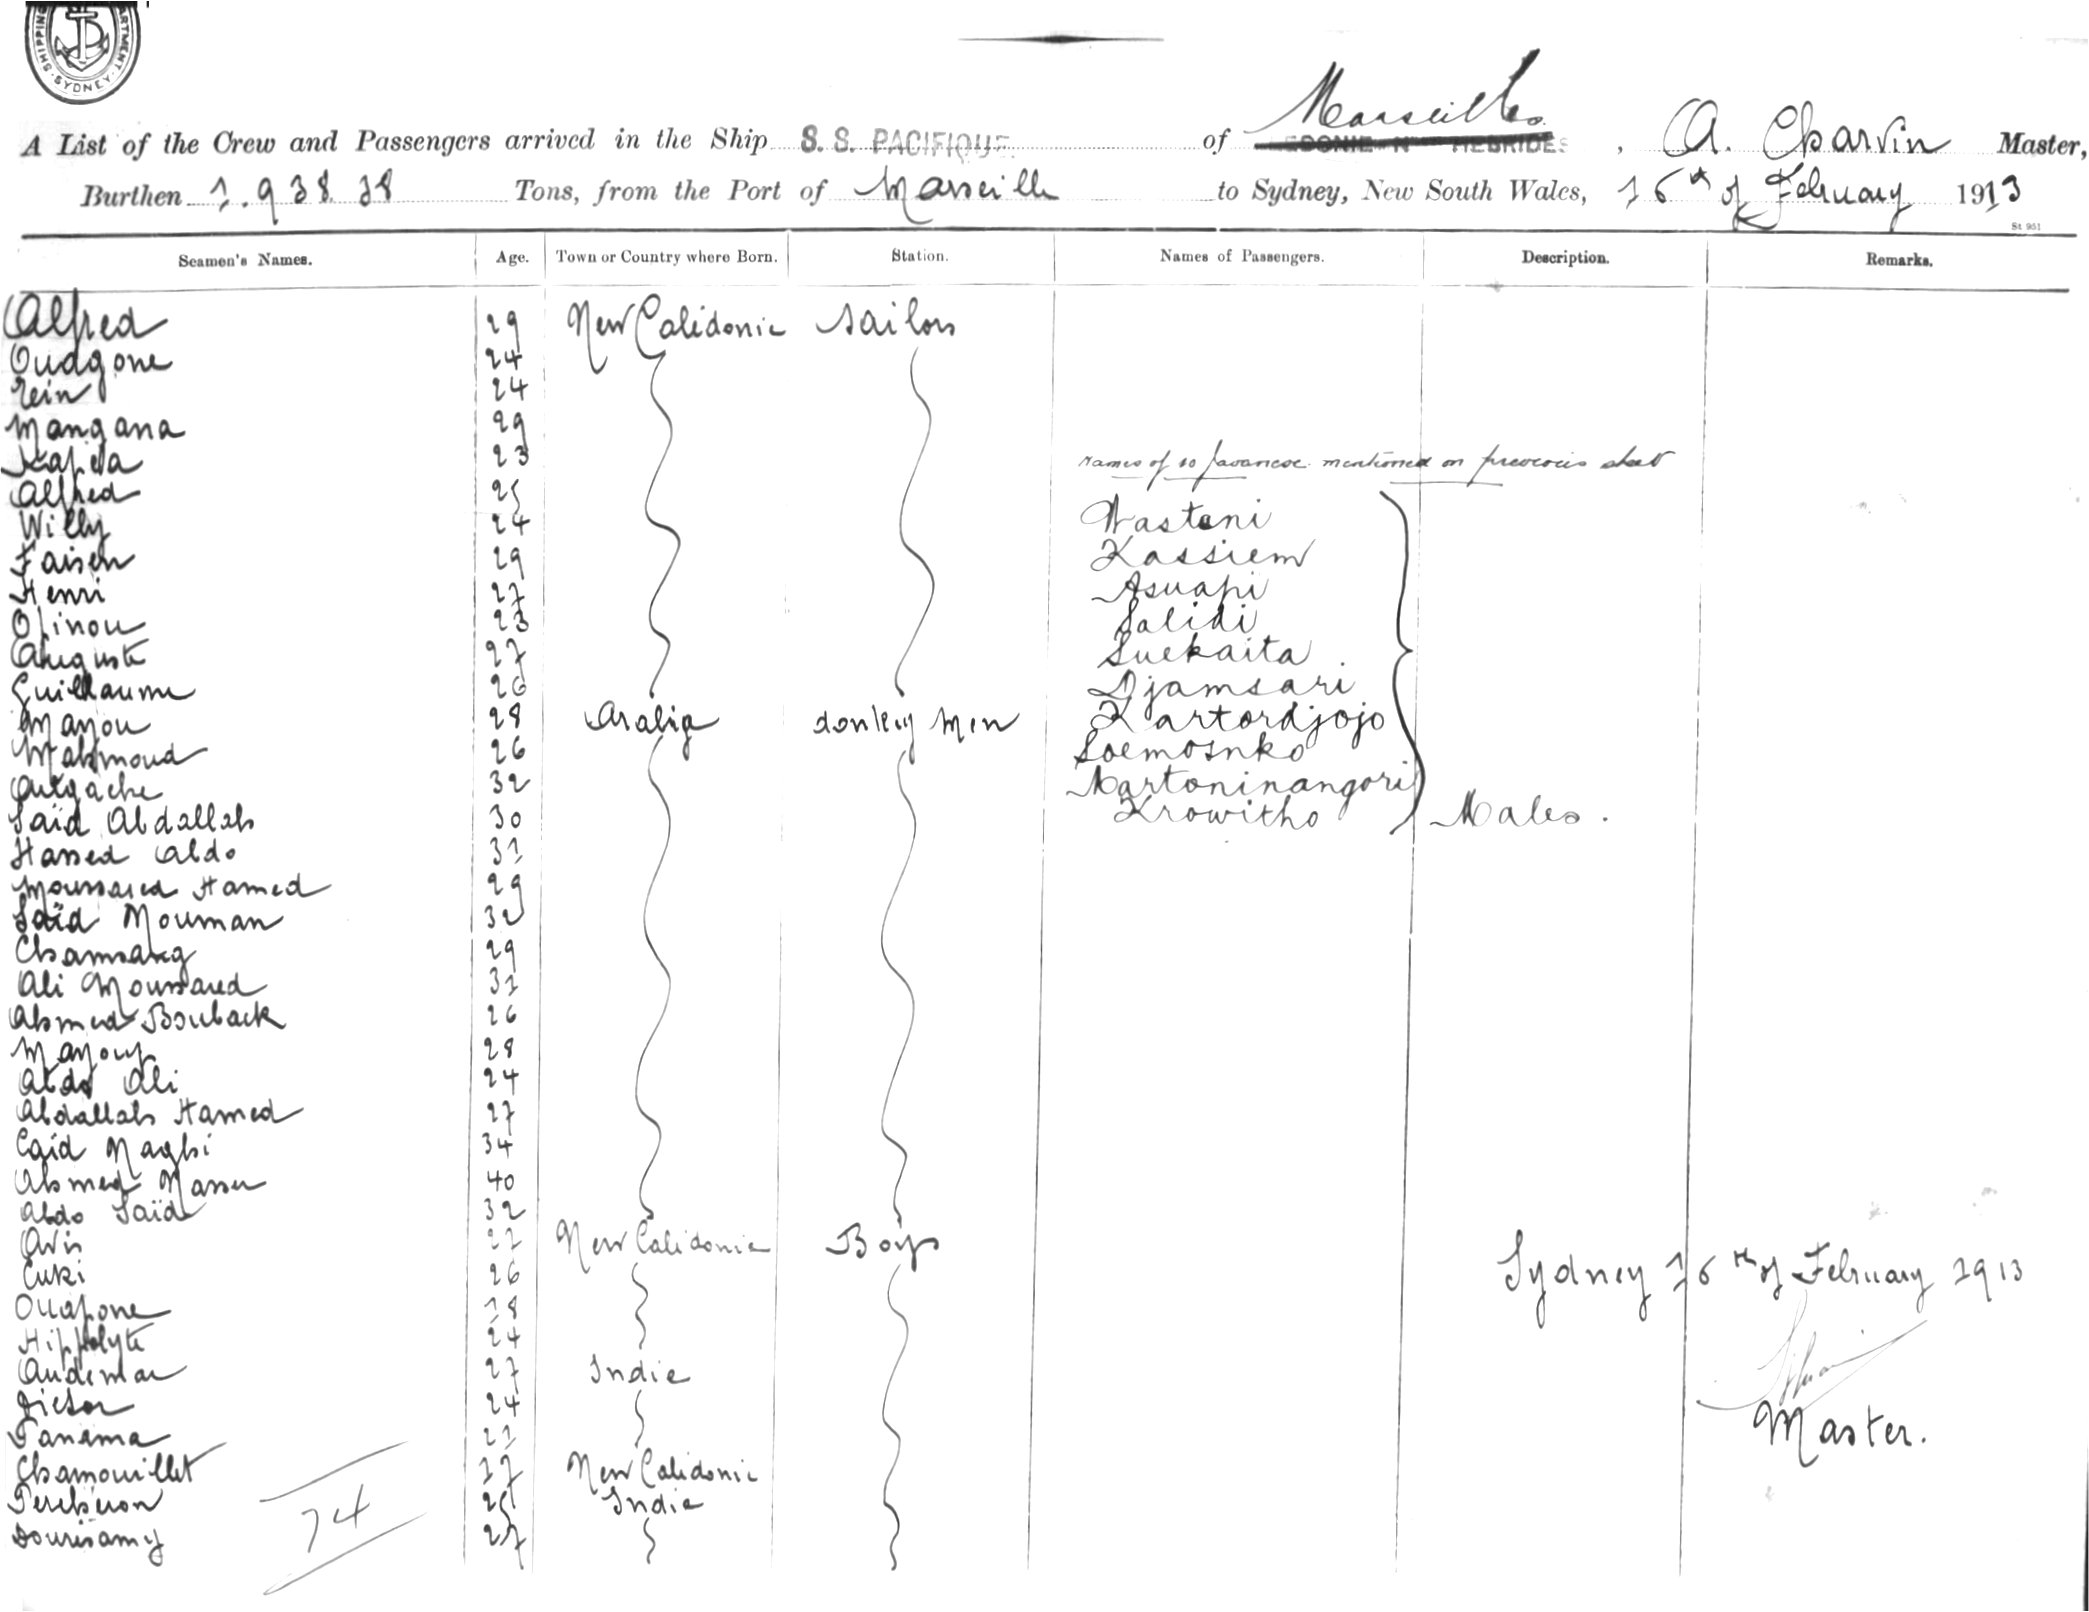 SHIPPING DEPARTMENT. SYDNEY.
A List of the Crew and Passengers arrived in the Ship S. S. PACIFIQUE of Marseilles, A. Charvin Master,
Burthen 1.938.38 Tons, from the Port of Marseille to Sydney, New South Wales, 16th of February 1913
St 951
Seamen's Names. Age. Town or Country where Born. Station. Names of Passengers. Description. Remarks.
Alfred 29 New Calidonie sailors
Oudgone 24
Zein 24
Mangana 29
Kapeta 23
Names of 10 Javanese mentioned on previous sheet
Alfred 25
Willy 24 Wastani
Faisen 29 Kassiem
Henri 27 Asuapi
Opinou 23 Salidi
Auguste 27 Suekaita
Guillaume 26 Djamsari
Mayou 28 Arabia donkey men Kartordjojo
Mahmoud 26 Soemosnko
Outgache 32 Martoninangori
Saïd Abdallah 30 Krowitho Males.
Hassed Abdo 31
Moussaied Hamed 29
Saïd Mouman 32
Chamsang 29
Ali Moussaied 31
Ahmed Bouback 26
Mayouf 28
Abdo Ali 24
Abdallah Hamed 27
Caïd Nagbi 34
Ahmed Nasser 40
Abdo Saïd 32
Avis 27 New Calidonie Boys
Cuki 26 Sydney 16th of February 1913
Ouapone 18
Hippolyte 24
Audemar 27 Indie
Victor 24
Panama 21 Master.
Chamouillet 17 New Calidonie
Percheron 25 Indie
Dourisamy 27
74